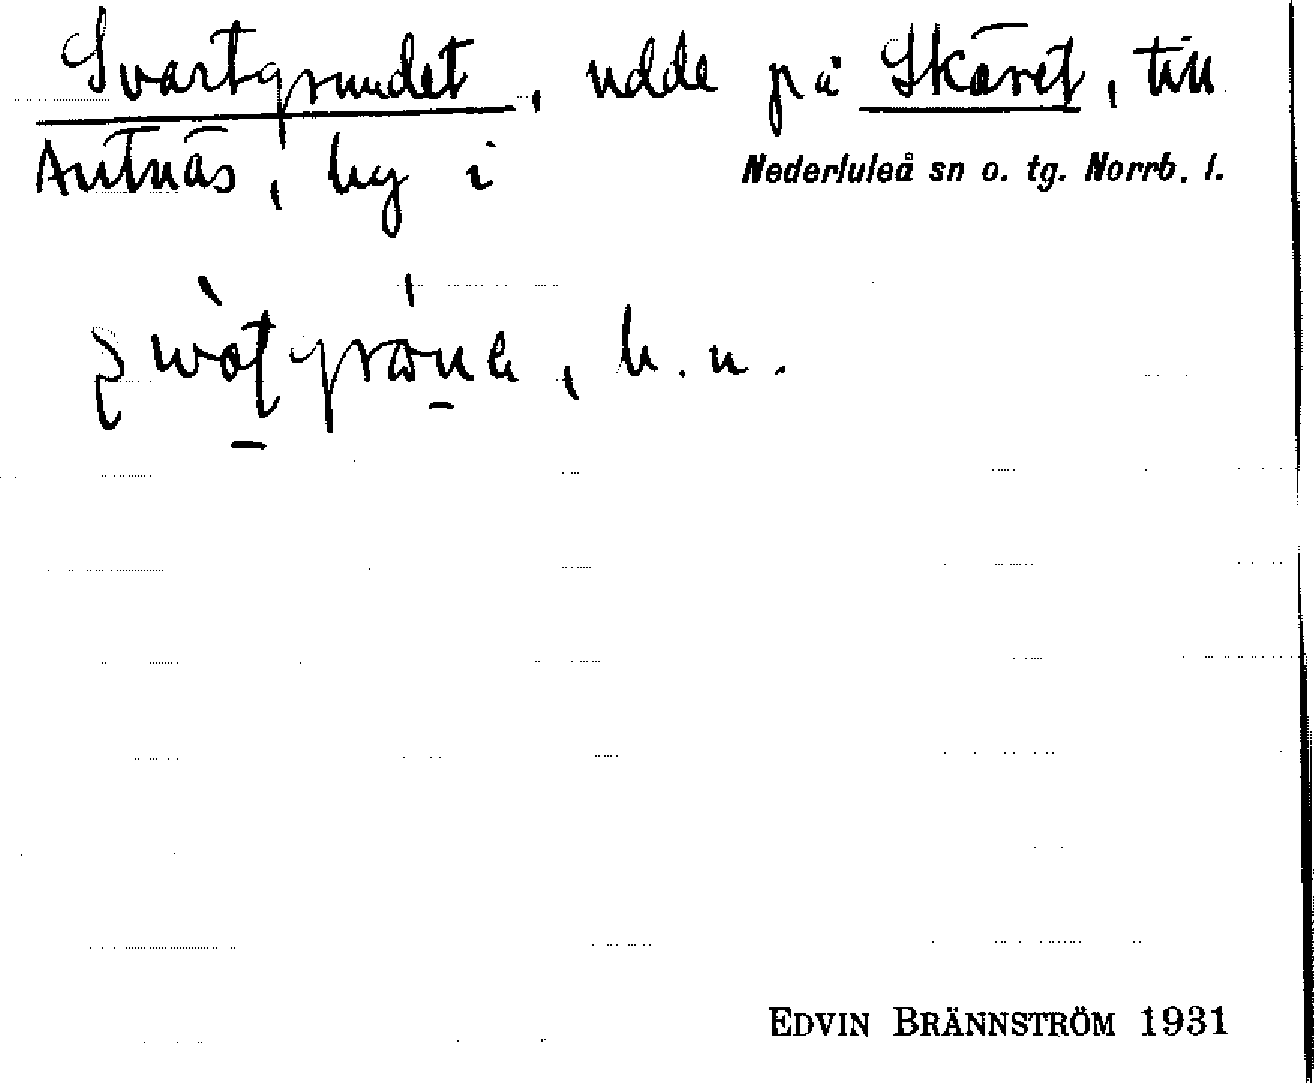 Svartgrundet, udde på Skäret, till
Antnäs, by i Nederluleå sn o. tg. Norrb. l.
b. n.
EDVIN BRÄNNSTRÖM 1931